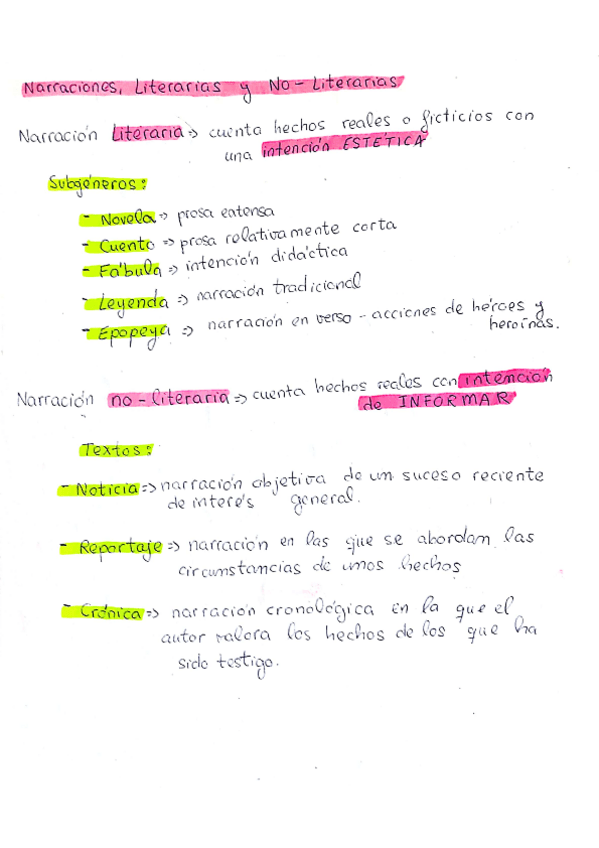 Narraciones, Literarias y No-Literarias
Narración Literaria => cuenta hechos reales o ficticios con
una intención ESTÉTICA
Subgéneros:
- Novela => prosa extensa
- Cuento => prosa relativamente corta
- Fábula => intención didáctica
- Leyenda => narración tradicional
- Epopeya => narración en verso - acciones de héroes y
heroínas.
Narración no-literaria => cuenta hechos reales con intención
de INFORMAR
Textos:
- Noticia => narración objetiva de un suceso reciente
de interés general.
- Reportaje => narración en las que se abordan las
circunstancias de unos hechos
- Crónica => narración cronológica en la que el
autor valora los hechos de los que ha
sido testigo.